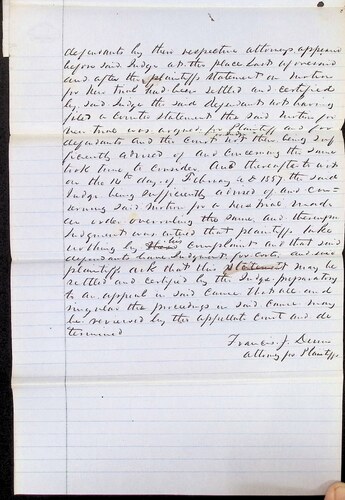 defendants by their respective attorneys appeared
before said Judge at the place last aforesaid
and after the plaintiffs statement on motion
for New trial had been settled and certified
by said Judge the said defendants not having
filed a counter statement the said motion for
New trial was argued for plaintiff and for
defendants and the Court not then being suf-
ficiently advised of and concerning the same
took time to consider. And thereafter to wit
on the 14th day of February AD 1857 the said
Judge being sufficiently advised of and con-
cerning said motion for a new trial made
an order overruling the same and thereupon
Judgment was entered that plaintiffs take
nothing by his complaint and that said
defendants have Judgment for costs and now
plaintiffs ask that this statement may be
settled and certified by the Judge preparatory
to an appeal in said Cause that all and
singular the proceedings in said cause may
be reviewed by the appellate Court and de
termined
Francis J.
Attorney for Plaintiffs